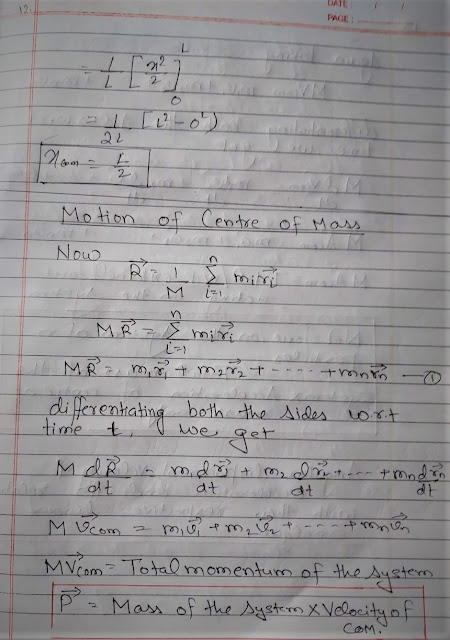 12.
DATE / /
PAGE:
= 1/L [x²/2]₀ᴸ
= 1/2L [L² - 0²)
x_com = L/2
Motion of Centre of Mass
Now
R⃗ = 1/M Σⁿᵢ₌₁ mᵢr⃗ᵢ
MR⃗ = Σⁿᵢ₌₁ mᵢr⃗ᵢ
MR⃗ = m₁r⃗₁ + m₂r⃗₂ + ---- + mₙr⃗ₙ —①
differentiating both the sides w.r.t
time t, we get
M dR⃗/dt = m₁dr⃗₁/dt + m₂ dr⃗₂/dt + --- + mₙdr⃗ₙ/dt
M v⃗com = m₁v⃗₁ + m₂v⃗₂ + ---- + mₙv⃗ₙ
MV⃗com = Total momentum of the system
P⃗ = Mass of the system X Velocity of
COM.